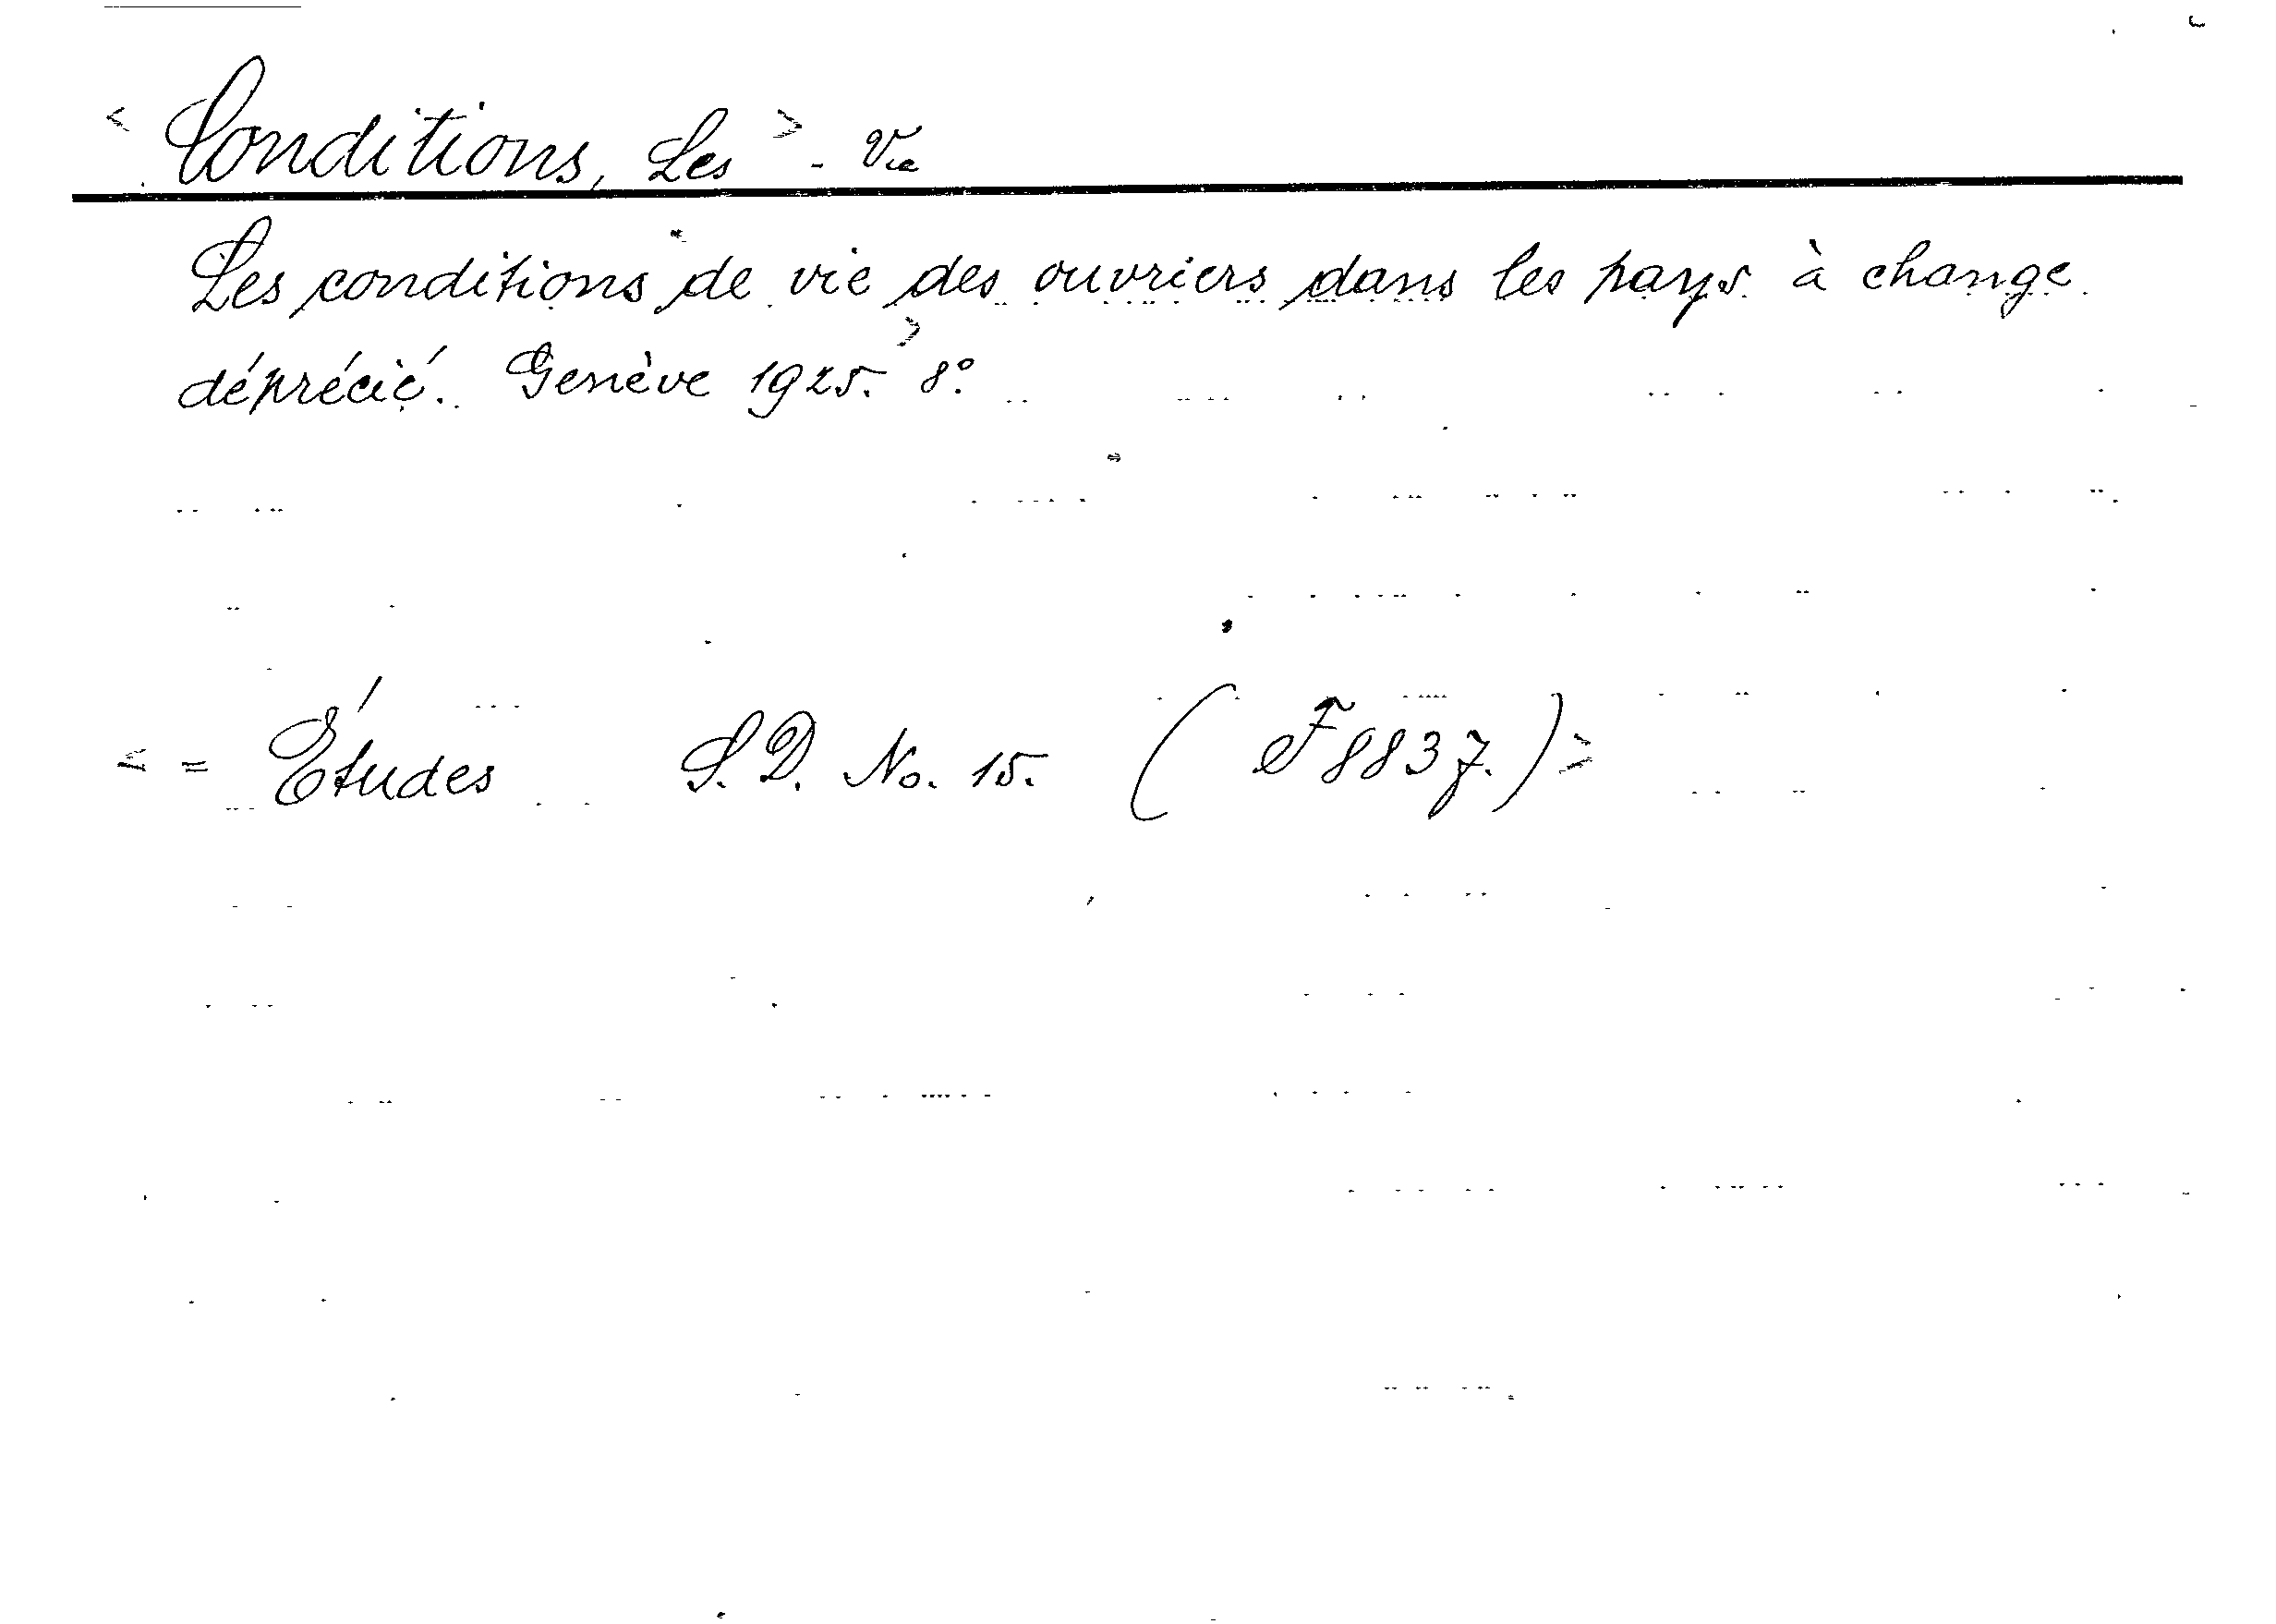 < Conditions, Les > - Vie
Les conditions de vie des ouvriers dans les pays à change
déprécié. Genève 1925. > 8°.
< = Études S. D. No. 15. ( F 8837. ) >